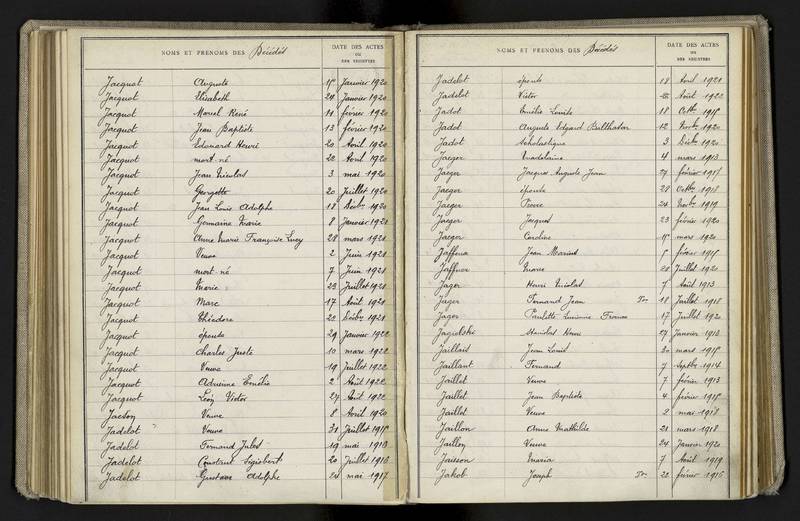 NOMS ET PRENOMS DES Décédés DATE DES ACTES
OU
DES REGISTRES
Jacquot Auguste 15 Janvier 1920
Jacquot Elisabeth 24 Janvier 1920
Jacquot Marcel René 11 février 1920
Jacquot Jean Baptiste 13 février 1920
Jacquot Edouard Henri 20 Avril 1920
Jacquot mort-né 22 Avril 1920
Jacquot Jean Nicolas 3 mai 1920
Jacquot Georgette 20 Juillet 1920
Jacquot Jean Louis Adolphe 18 Décbre 1920
Jacquot Germaine Marie 8 Janvier 1921
Jacquot Anne Marie Françoise Lucy 28 mars 1921
Jacquot Veuve 2 Juin 1921
Jacquot mort-né 7 Juin 1921
Jacquot Marie 23 Juillet 1921
Jacquot Marc 17 Août 1921
Jacquot Théodore 22 Décbre 1921
Jacquot épouse 29 Janvier 1922
Jacquot Charles Juste 10 mars 1922
Jacquot Veuve 19 Juillet 1922
Jacquot Adrienne Emélie 2 Août 1922
Jacquot Léon Victor 27 Août 1922
Jacson Veuve 8 Avril 1920
Jadelot Veuve 31 Juillet 1915
Jadelot Fernand Jules 19 mai 1913
Jadelot Sigisbert 20 Juillet 1913
Jadelot Gustave Adolphe 24 mai 1917
NOMS ET PRENOMS DES Décédés DATE DES ACTES
OU
DES REGISTRES
Jadelot épouse 18 Avril 1921
Jadelot Victor Août 1922
Jadot Emélie Louise 18 Octbre 1915
Jadot Auguste Edgard Balthazar 12 Novbre 1920
Jadot Scholastique 3 Décbre 1920
Jaeger Madelaine 4 mars 1913
Jaeger Jacques Auguste Jean 27 février 1917
Jaeger épouse 28 Octbre 1918
Jaeger Pierre 24 Novbre 1919
Jaeger Jacques 23 février 1920
Jaeger Caroline 15 mars 1920
Jaffena Jean Marius février 1915
Jaffner Marie 20 Juillet 1920
Jager Henri Nicolas 7 Août 1913
Jager Fernand Jean Tr. 18 Juillet 1918
Jager Paulette Lucienne France 17 Juillet 1920
Stanislas Henri 27 Janvier 1913
Jaillais Jean Louis 30 mars 1915
Jaillant Fernand 7 Septbre 1914
Jaillet Veuve 7 février 1913
Jaillet Jean Baptiste 4 février 1915
Jaillet Veuve 2 mai 1917
Jaillon Anne Mathilde 21 mars 1918
Jaillon Veuve 24 Janvier 1920
Jaisson Maria 7 Août 1919
Jakob Joseph Tr. 22 février 1916